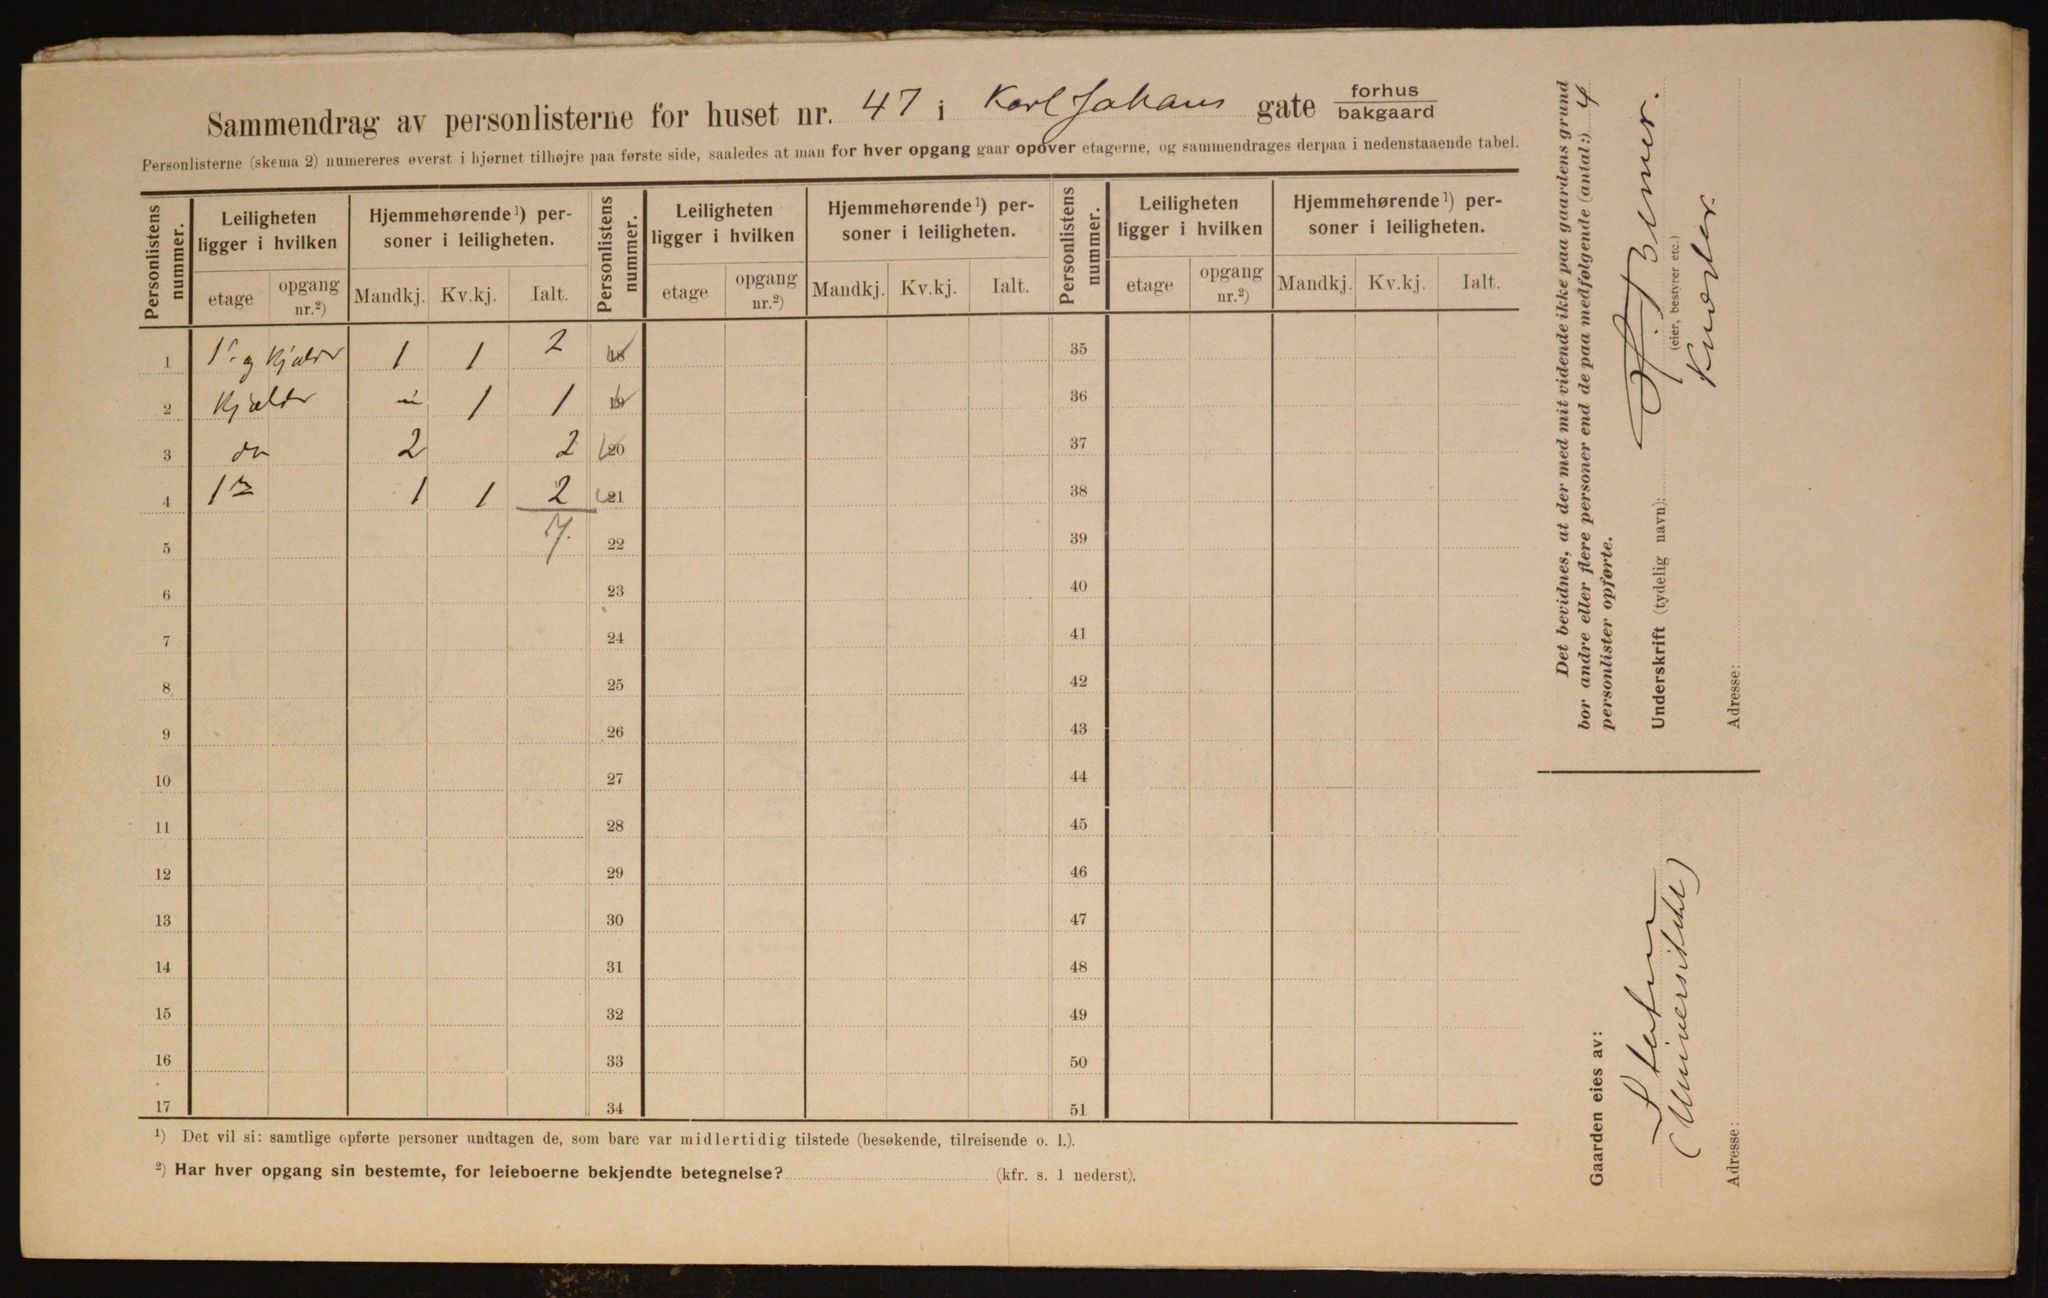 Sammendrag av personlisterne for huset nr. 47 i Karl Johans gate forhus/bakgaard
Personlisterne (skema 2) numereres øverst i hjørnet tilhøjre paa første side, saaledes at man for hver opgang gaar opover etagerne, og sammendrages derpaa i nedenstaaende tabel.
Personlistens nummer. | Leiligheten ligger i hvilken | Hjemmehørende ¹) personer i leiligheten. | Personlistens nummer. | Leiligheten ligger i hvilken | Hjemmehørende ¹) personer i leiligheten. | Personlistens nummer. | Leiligheten ligger i hvilken | Hjemmehørende ¹) personer i leiligheten.
etage | opgang nr.²) | Mandkj. | Kv.kj. | Ialt. | etage | opgang nr.²) | Mandkj. | Kv.kj. | Ialt. | etage | opgang nr.²) | Mandkj. | Kv.kj. | Ialt.
1 | og kjælder | 1 | 1 | 2 | 18 | 35
2 | kjælder | 1 | 1 | 19 | 36
3 | do | 2 | 2 | 20 | 37
4 | 1 | 1 | 2 | 21 | 38
5 | 7. | 22 | 39
6 | 23 | 40
7 | 24 | 41
8 | 25 | 42
9 | 26 | 43
10 | 27 | 44
11 | 28 | 45
12 | 29 | 46
13 | 30 | 47
14 | 31 | 48
15 | 32 | 49
16 | 33 | 50
17 | 34 | 51
¹) Det vil si: samtlige opførte personer undtagen de, som bare var midlertidig tilstede (besøkende, tilreisende o. l.).
²) Har hver opgang sin bestemte, for leieboerne bekjendte betegnelse? (kfr. s. 1 nederst).
Det bevidnes, at der med mit vidende ikke paa gaardens grund
bor andre eller flere personer end de paa medfølgende (antal:) 4
personlister opførte.
Underskrift (tydelig navn):
(eier, bestyrer etc.)
Kvæstor.
Adresse:
Gaarden eies av:
Staten
(Universitetet)
Adresse: